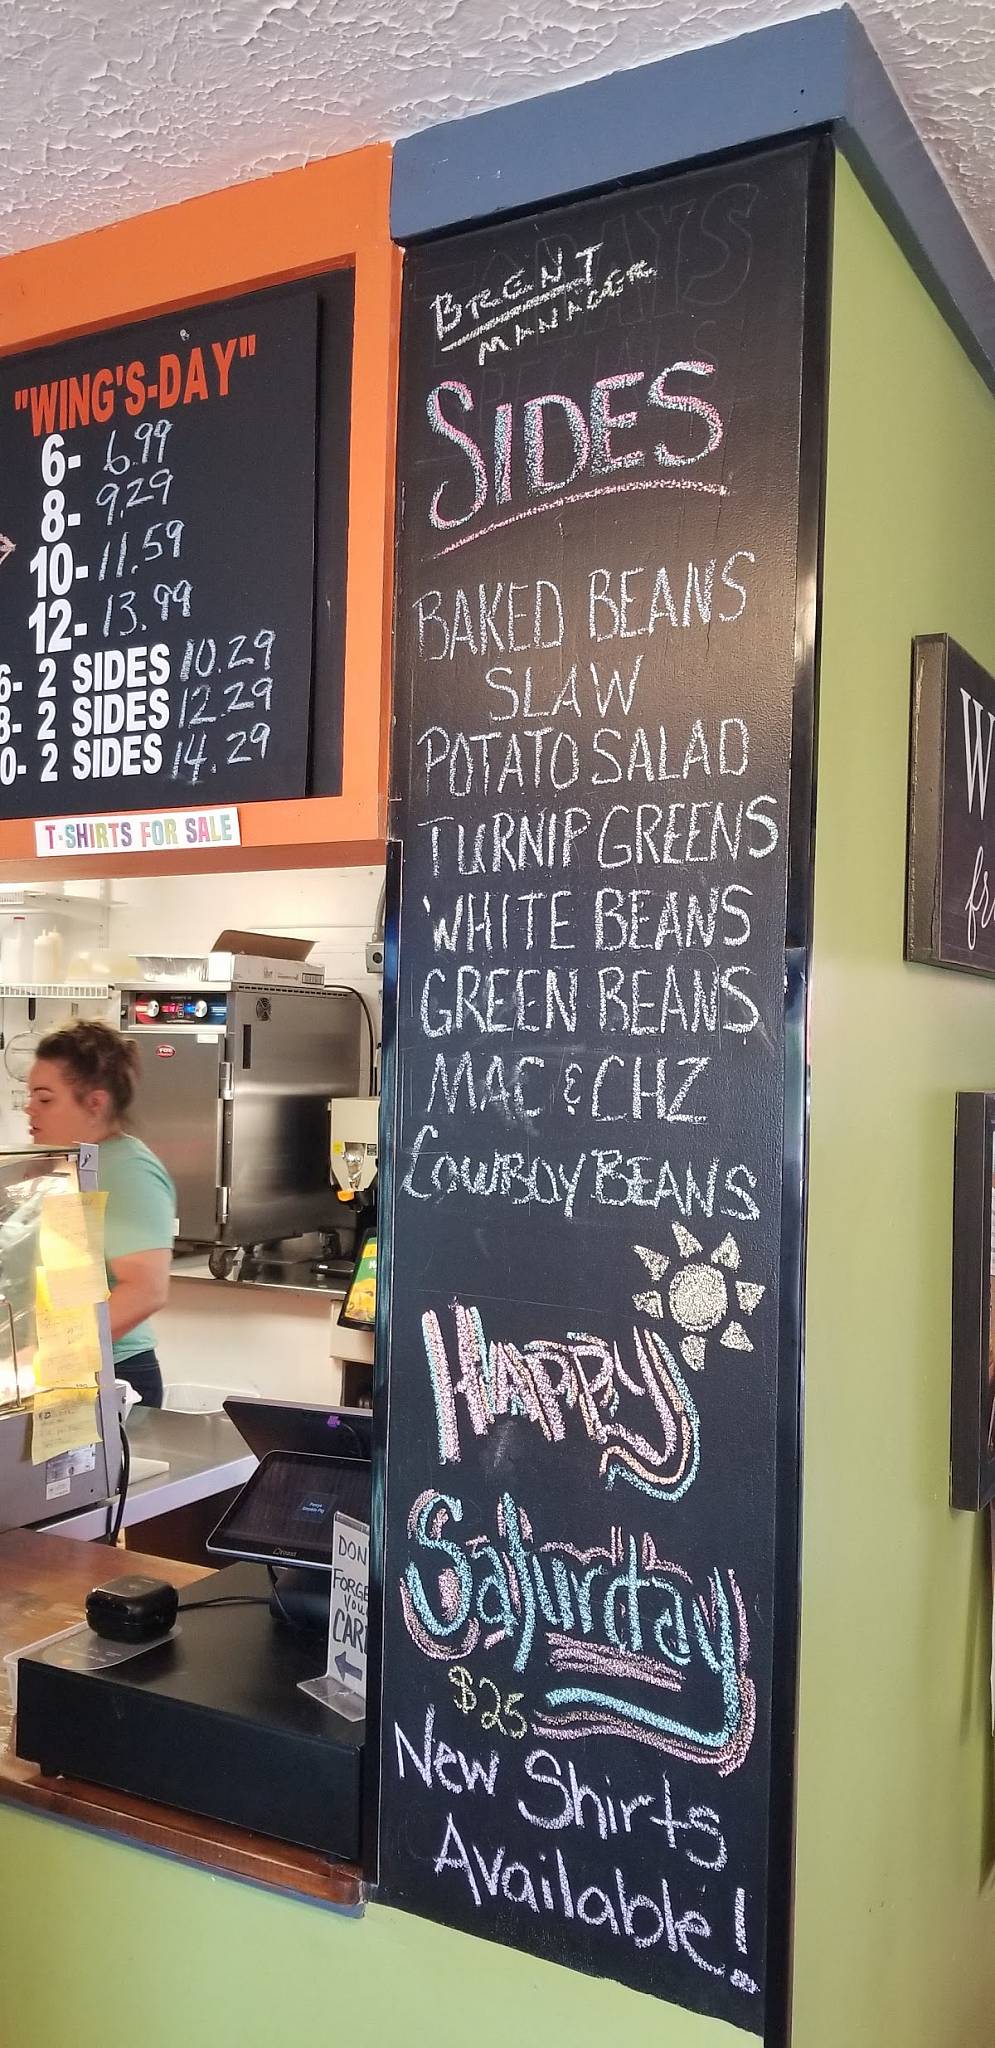 "WING'S-DAY"
6- 6.99
8- 9.29
10- 11.59
12- 13.99
6- 2 SIDES 10.29
8- 2 SIDES 12.29
0- 2 SIDES 14.29
T-SHIRTS FOR SALE
BRENT
MANAGER
SIDES
BAKED BEANS
SLAW
POTATO SALAD
TURNIP GREENS
WHITE BEANS
GREEN BEANS
MAC & CHZ
COWBOY BEANS
HAPPY
Saturday
$25
New Shirts
Available!
DON
FORGE
YOU
CAR
W
fr